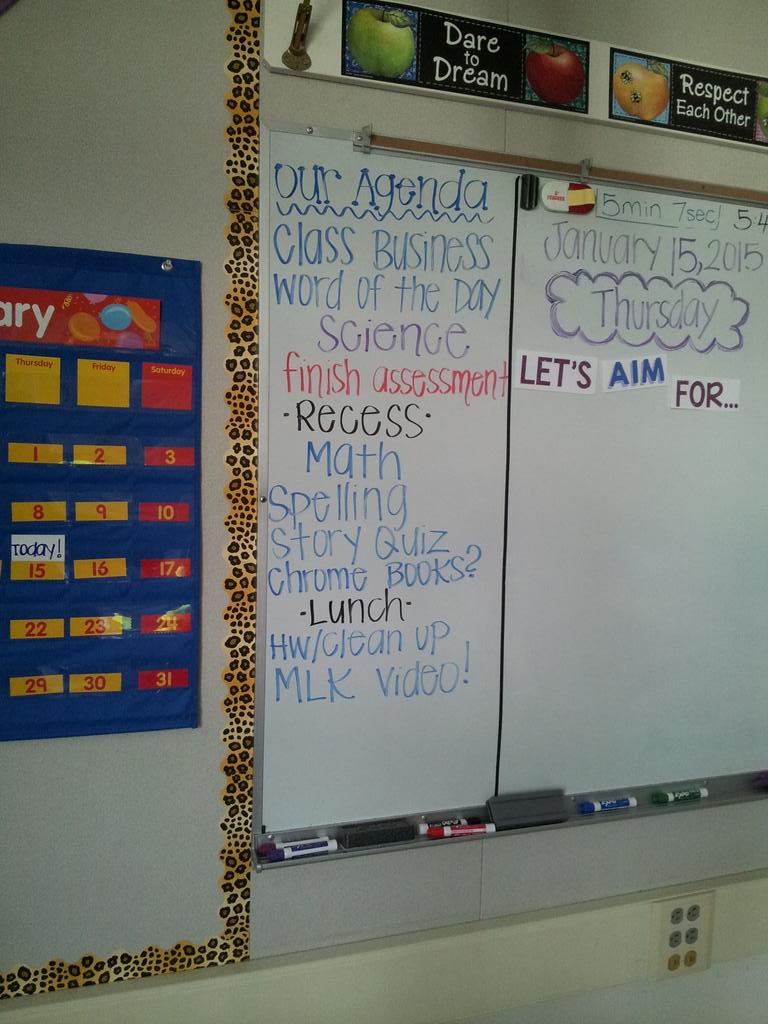 Dare
to
Dream
Respect
Each Other
Our Agenda
Class Business
Word of the Day
Science
finish assessment
·Recess·
Math
Spelling
Story Quiz
Chrome Books?
-Lunch-
HW/clean up
MLK video!
5min 7sec 5:4
January 15, 2015
Thursday
LET'S AIM FOR...
ary
Thursday Friday Saturday
1 2 3
8 9 10
Today!
15 16 17
22 23 24
29 30 31